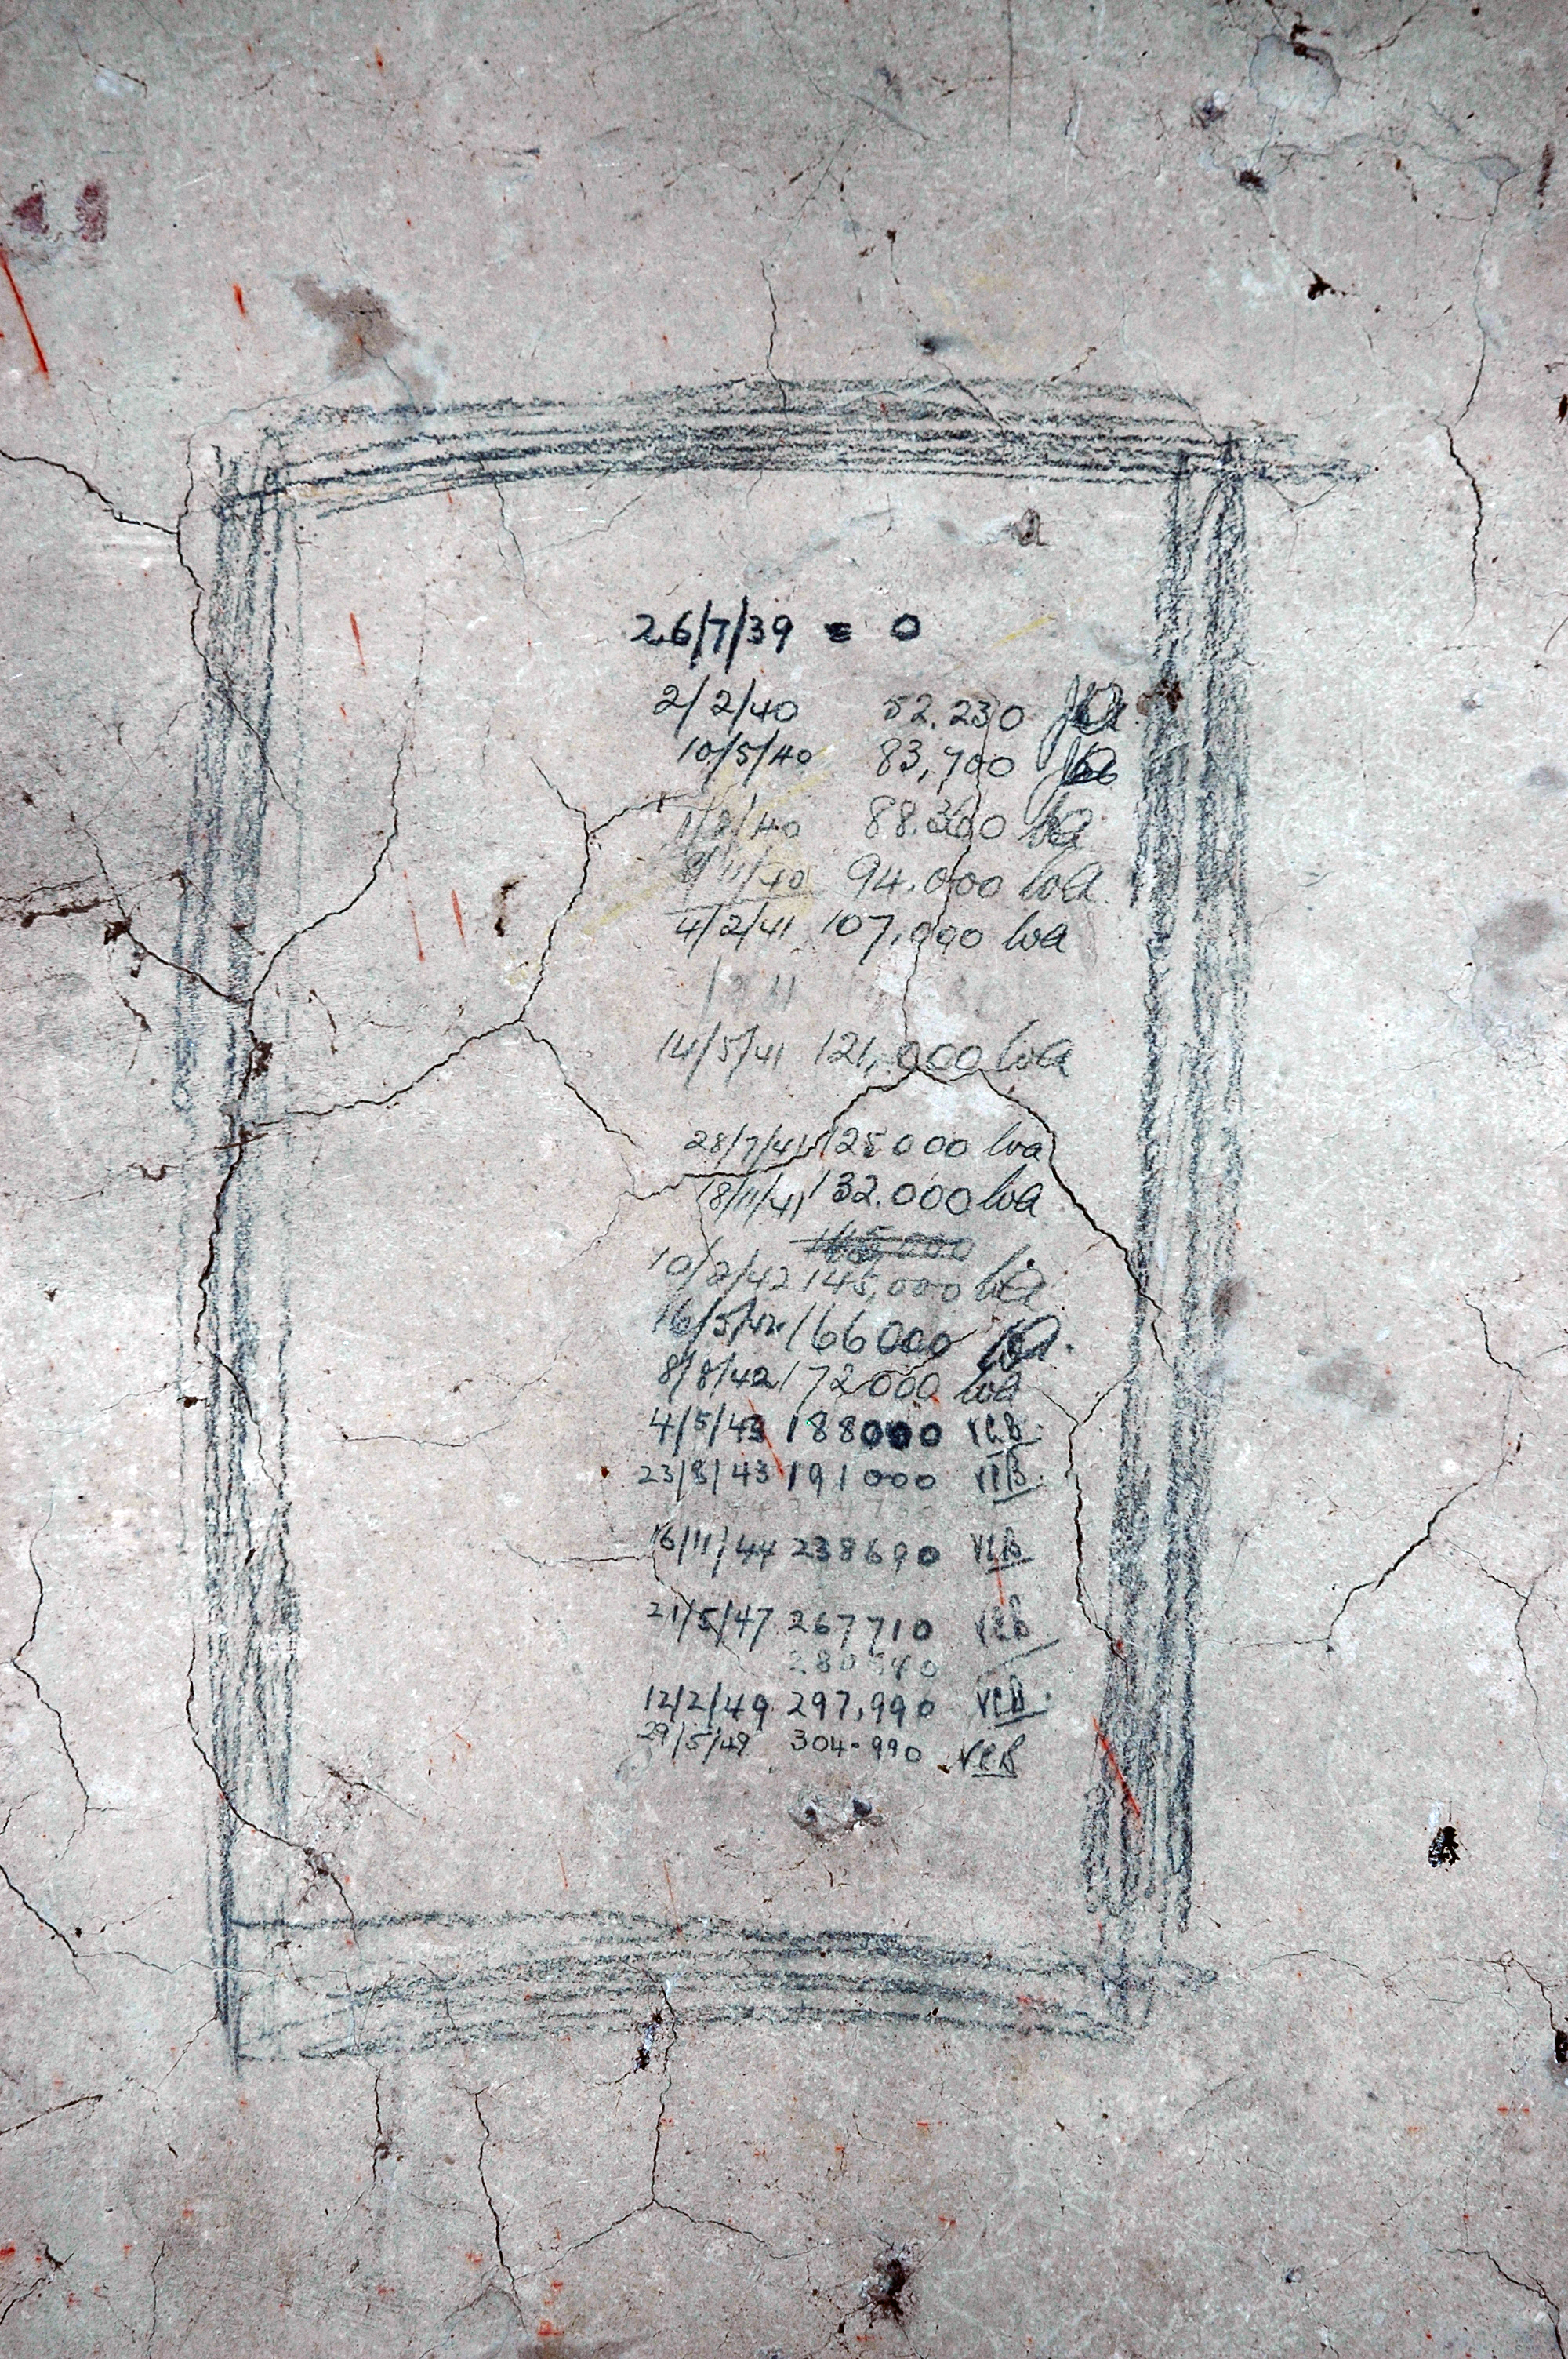 26/7/39 = 0
2/2/40 52.230
10/5/40 83,700
1/8/40 88.300
9/11/40 94.000 WA
4/2/41 107,000 WA
14/5/41 121,000 WA
28/7/41 125000 WA
18/11/41 132.000 WA
10/2/42 145,000 WA
16/5/42 166000
8/8/42 172000 WA
4/5/43 188000 VCB
23/8/43 191000 VCB
16/11/44 238690 VCB
21/5/47 267710 VCB
12/2/49 297,990 VCB
29/5/49 304.990 VCB